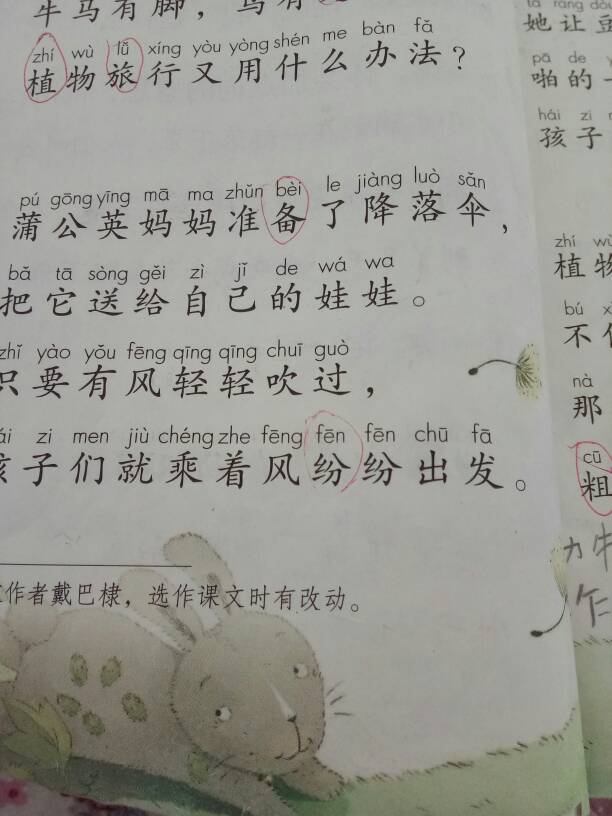 牛马有脚，鸟有
zhí wù lǚ xíng yòu yòng shén me bàn fǎ
植物旅行又用什么办法？
pú gōng yīng mā ma zhǔn bèi le jiàng luò sǎn
蒲公英妈妈准备了降落伞，
bǎ tā sòng gěi zì jǐ de wá wa
把它送给自己的娃娃。
zhǐ yào yǒu fēng qīng qīng chuī guò
只要有风轻轻吹过，
ái zi men jiù chéng zhe fēng fēn fēn chū fā
孩子们就乘着风纷纷出发。
作者戴巴棣，选作课文时有改动。
tā ràng dòu
她让豆
pā de
啪的一
hái zi
孩子
zhí wù
植物
bú
不
nà
那
cū
粗